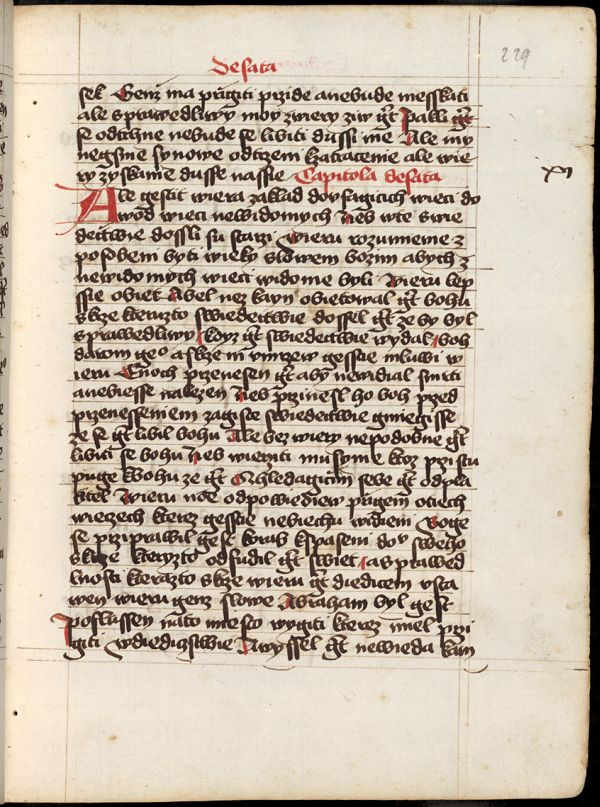 Desata
229
sek Genz ma prugiti przide anebude messkati
ale sprawedliwy moy zwiery ziw gt Pakli gt
se odtrhne nebude se libiti dussi me Ale my
negsme synowe odtrzeni kztracenie ale wie
ry zyskanie dusse nassie Capitola desata
XI
Ale gestit wiera zaklad dovfagicich wieci do
wod wieci newidomych Neb wte swie
dectwie dossli su starzi Wieru rozumieme z
posobem byti wieky slowem bozim abych z
newidomych wieci widome byli Wieru lep
ssie obiet Abel nez kayn obietowal gt bohu
skrze kteruzto swiedectwie dossel gt ze by byl
sprawedliwy kdyz gt swiedectwie wydal boh
darom geo a skrze ni vmrzew gesstie mluwi w
ieru Enoch przenesen gt aby newidial smrti
anebiesse nalezen Neb przinesl ho boh przed
przenesseniem zagiste swiedectwie gmiegisse
ze se gt libil bohu Ale bez wiery nepodobne gt
libiti se bohu Neb wierziti musy ktoz przistu
puge kbohu ze gt Ahledagicim sebe gt odpla
ktel Wieru noe odpowiediew prugem otiech
wieczech kterez gesstie nebiechu widieni Boge
se prziprawil gest korab kspaseni dov sweho
skrze kteryzto odsudil gt swiet a sprawed
lnosti kterazto skrze wieru gt diedicem vsta
wen wieru genz slowe Abraham byl gest
poslussen nato miesto wygiti kterez miel przi
giti wdiediczstwie Awyssel gt newieda kam